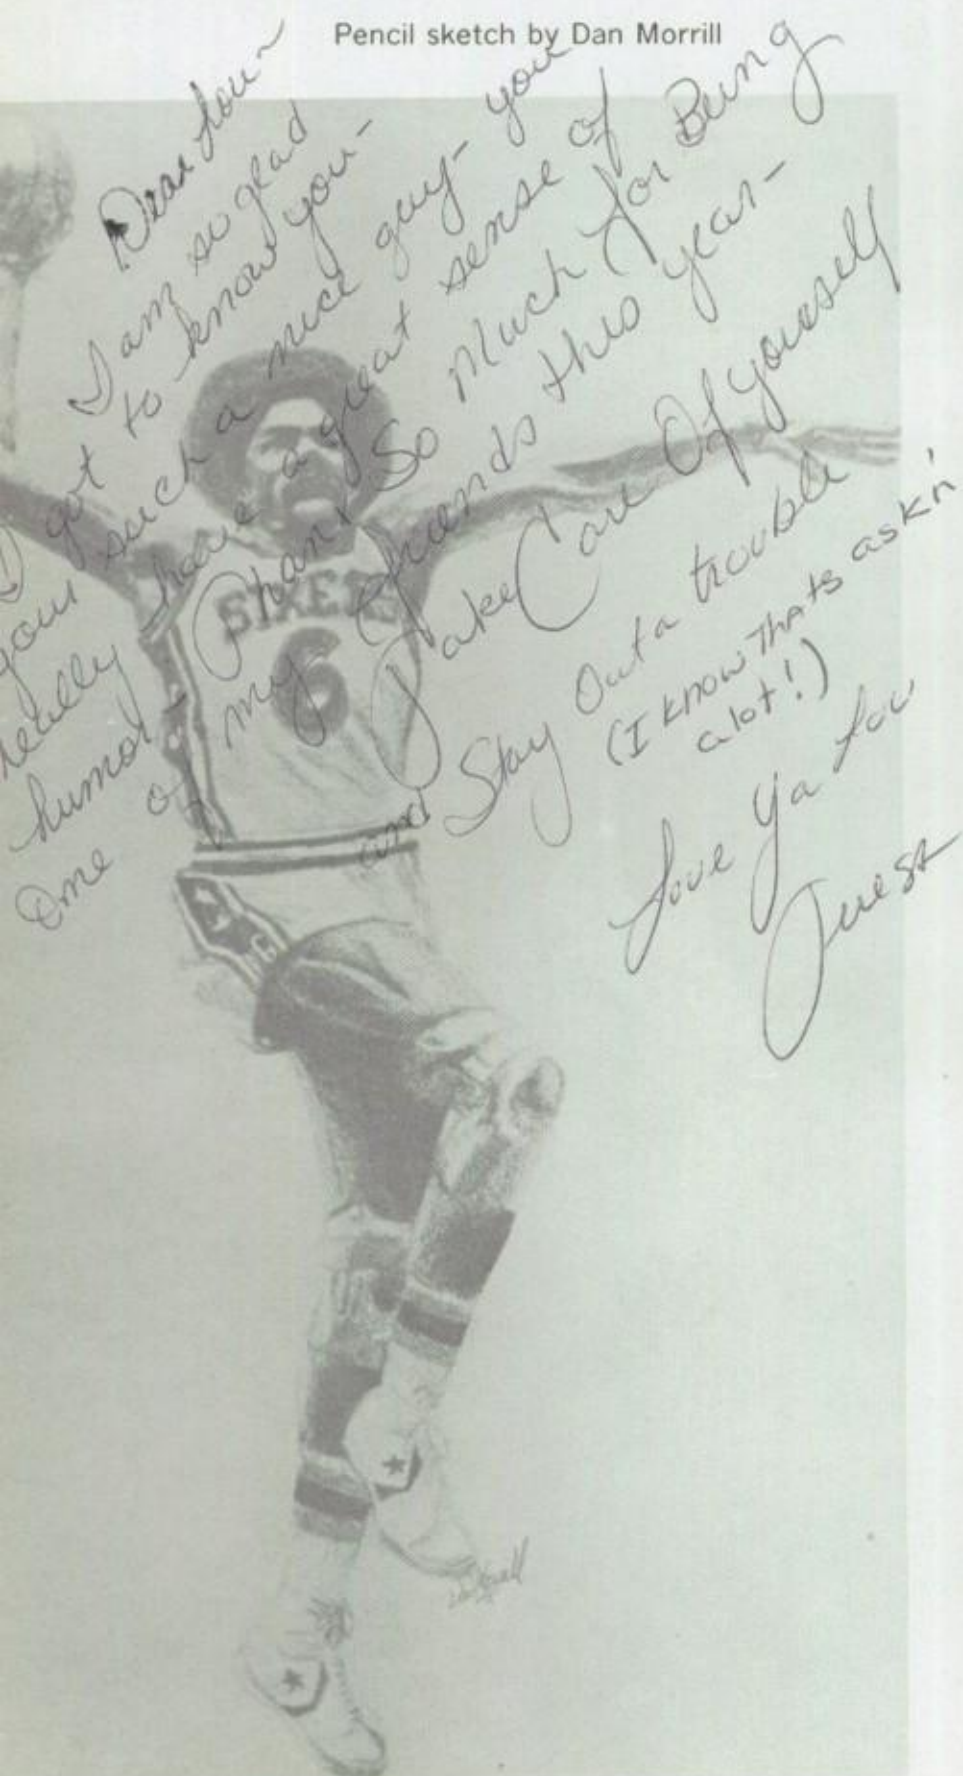 Pencil sketch by Dan Morrill
Dear Lou~
I am so glad
I got to know you-
your such a nice guy- you
really have a great sense of
humor- Thanx So Much for Being
One of my friends this year-
Take Care Of yourself
and Stay Outa trouble
(I know Thats askn'
alot!)
Love Ya Lou
SIXERS
6